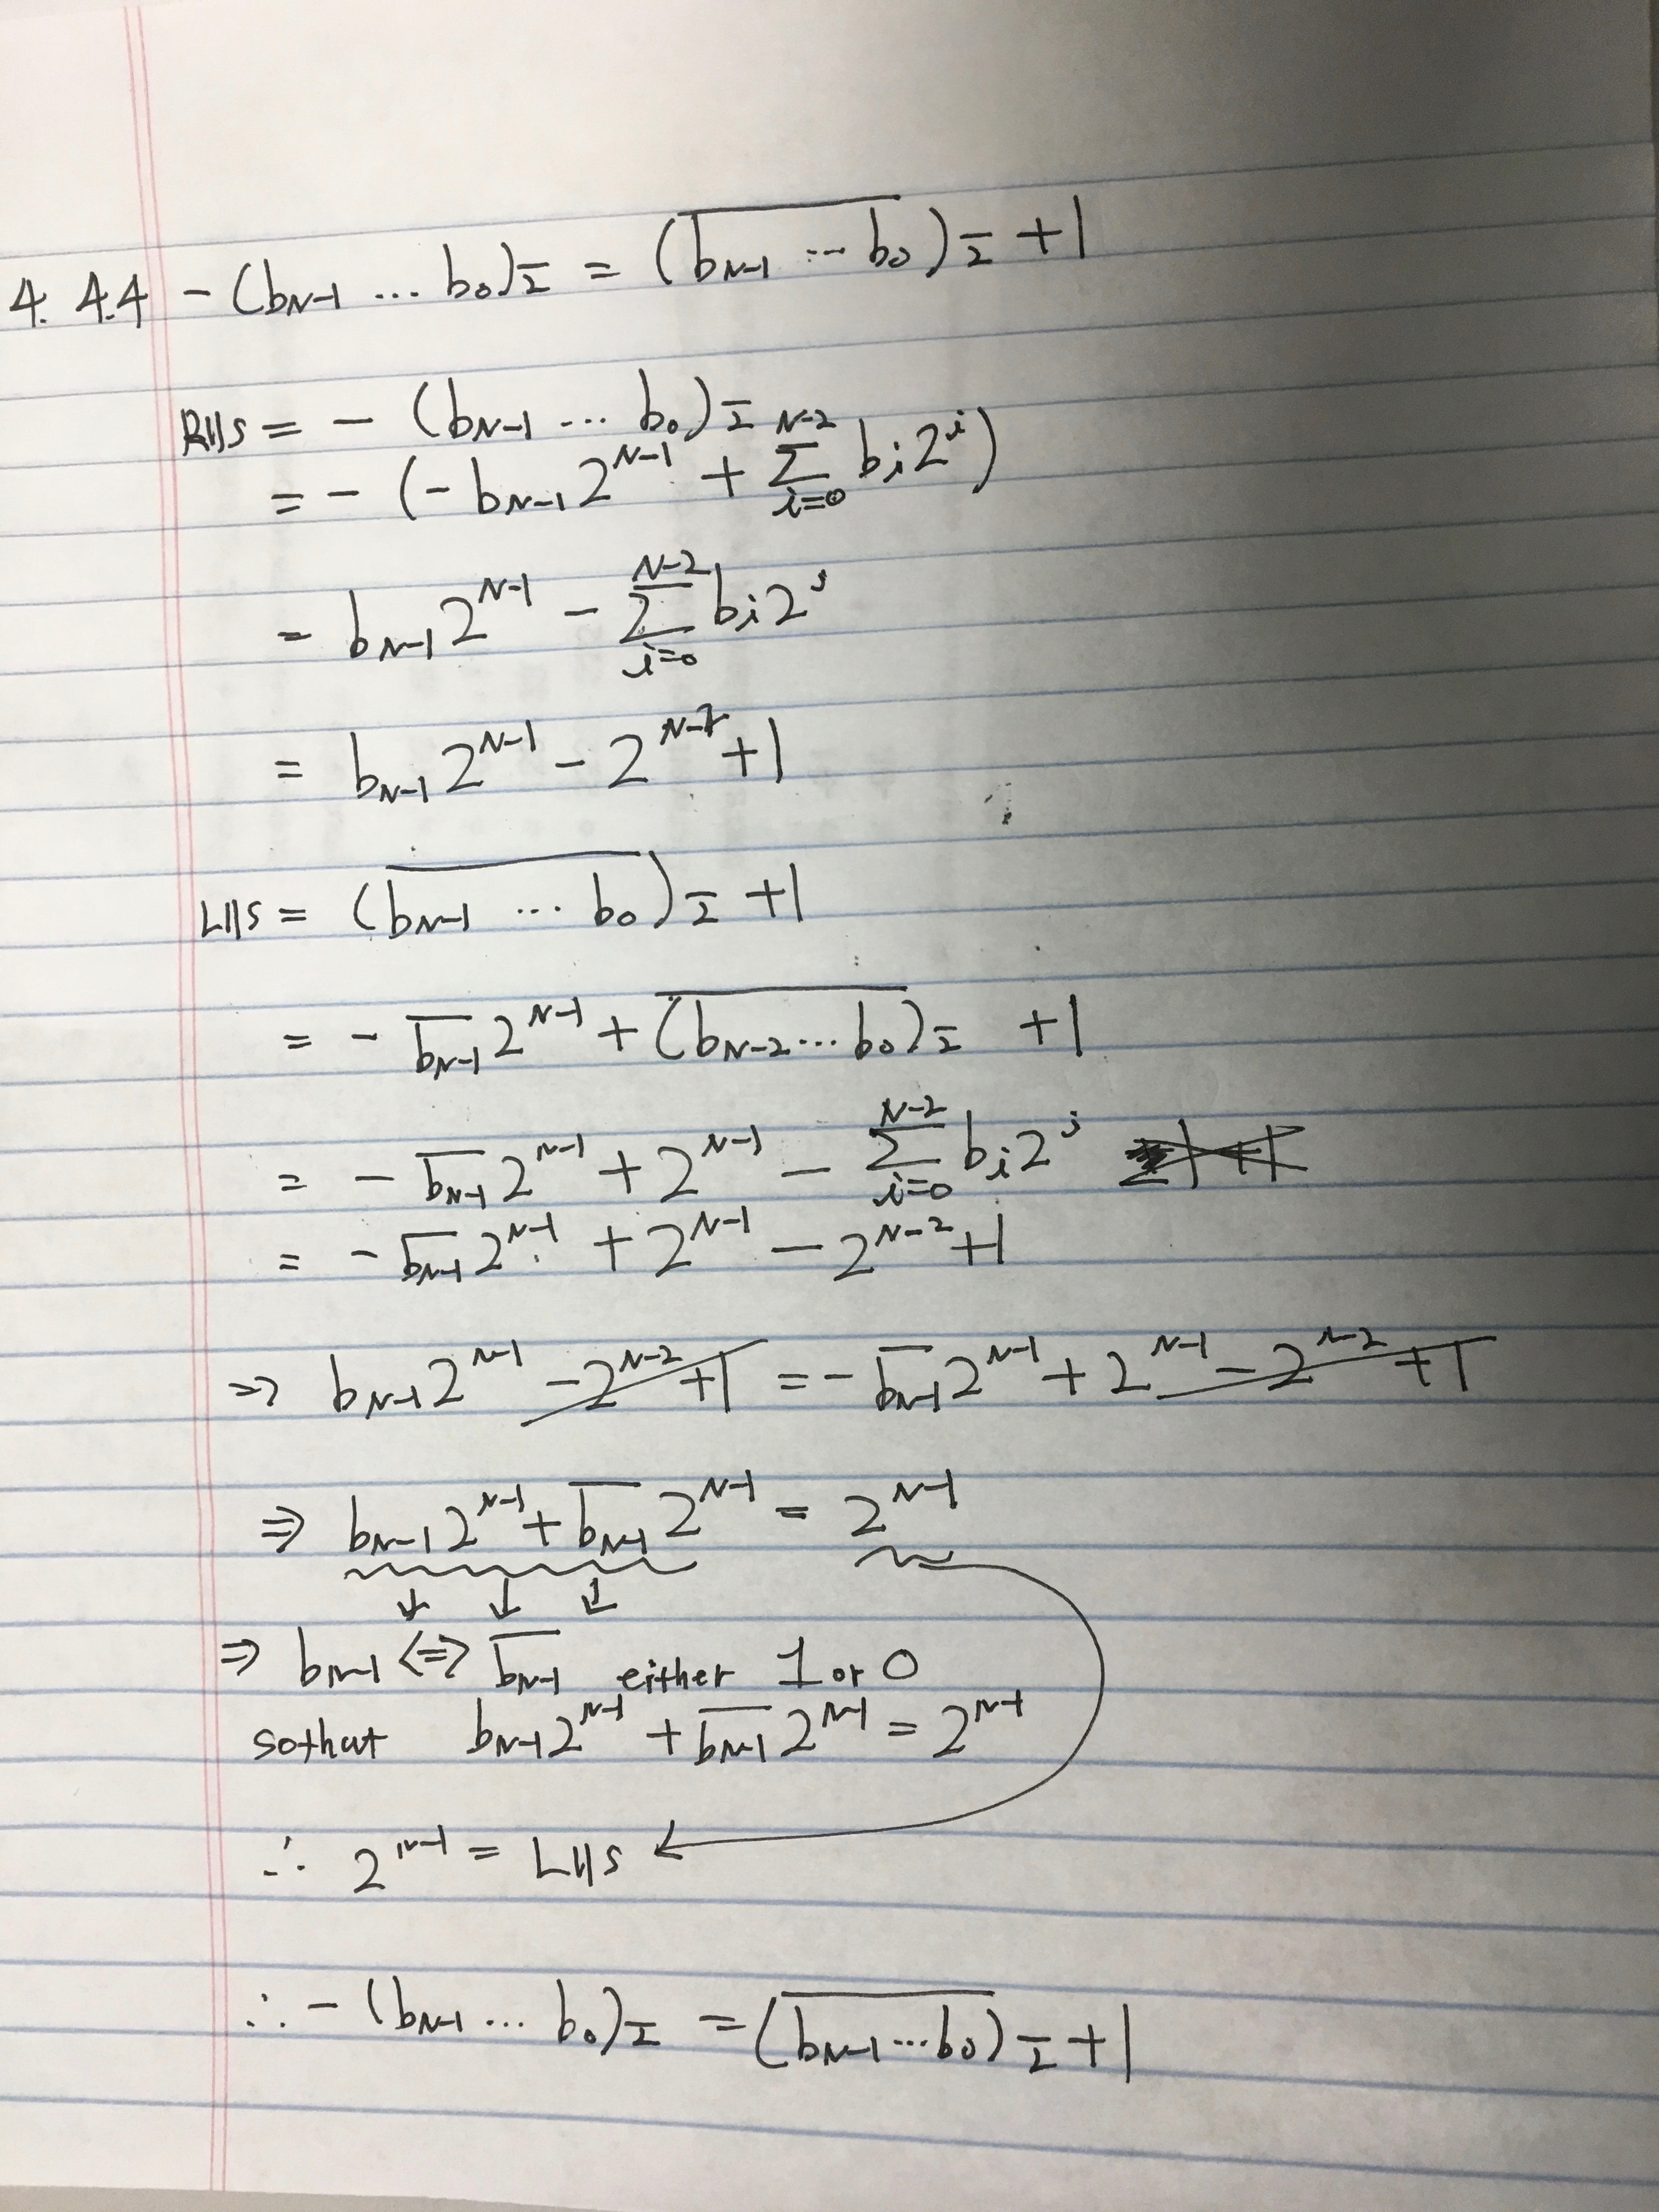 4. 4.4 -(b_{N-1} ... b_0)_{\bar{2}} = (\overline{b_{N-1} ... b_0})_{\bar{2}} + 1
RHS = - (b_{N-1} ... b_0)_{\bar{2}}
= - (-b_{N-1} 2^{N-1} + \sum_{i=0}^{N-2} b_i 2^i)
= b_{N-1} 2^{N-1} - \sum_{i=0}^{N-2} b_i 2^i
= b_{N-1} 2^{N-1} - 2^{N-2} + 1
LHS = (\overline{b_{N-1} ... b_0})_{\bar{2}} + 1
= - \overline{b_{N-1}} 2^{N-1} + (\overline{b_{N-2} ... b_0})_{\bar{2}} + 1
= - \overline{b_{N-1}} 2^{N-1} + 2^{N-1} - \sum_{i=0}^{N-2} b_i 2^i
= - \overline{b_{N-1}} 2^{N-1} + 2^{N-1} - 2^{N-2} + 1
⇒ b_{N-1} 2^{N-1} - 2^{N-2} + 1 = - \overline{b_{N-1}} 2^{N-1} + 2^{N-1} - 2^{N-2} + 1
⇒ b_{N-1} 2^{N-1} + \overline{b_{N-1}} 2^{N-1} = 2^{N-1}
⇒ b_{N-1} ⇔ \overline{b_{N-1}} either 1 or 0
so that b_{N-1} 2^{N-1} + \overline{b_{N-1}} 2^{N-1} = 2^{N-1}
∴ 2^{N-1} = LHS
∴ -(b_{N-1} ... b_0)_{\bar{2}} = (\overline{b_{N-1} ... b_0})_{\bar{2}} + 1